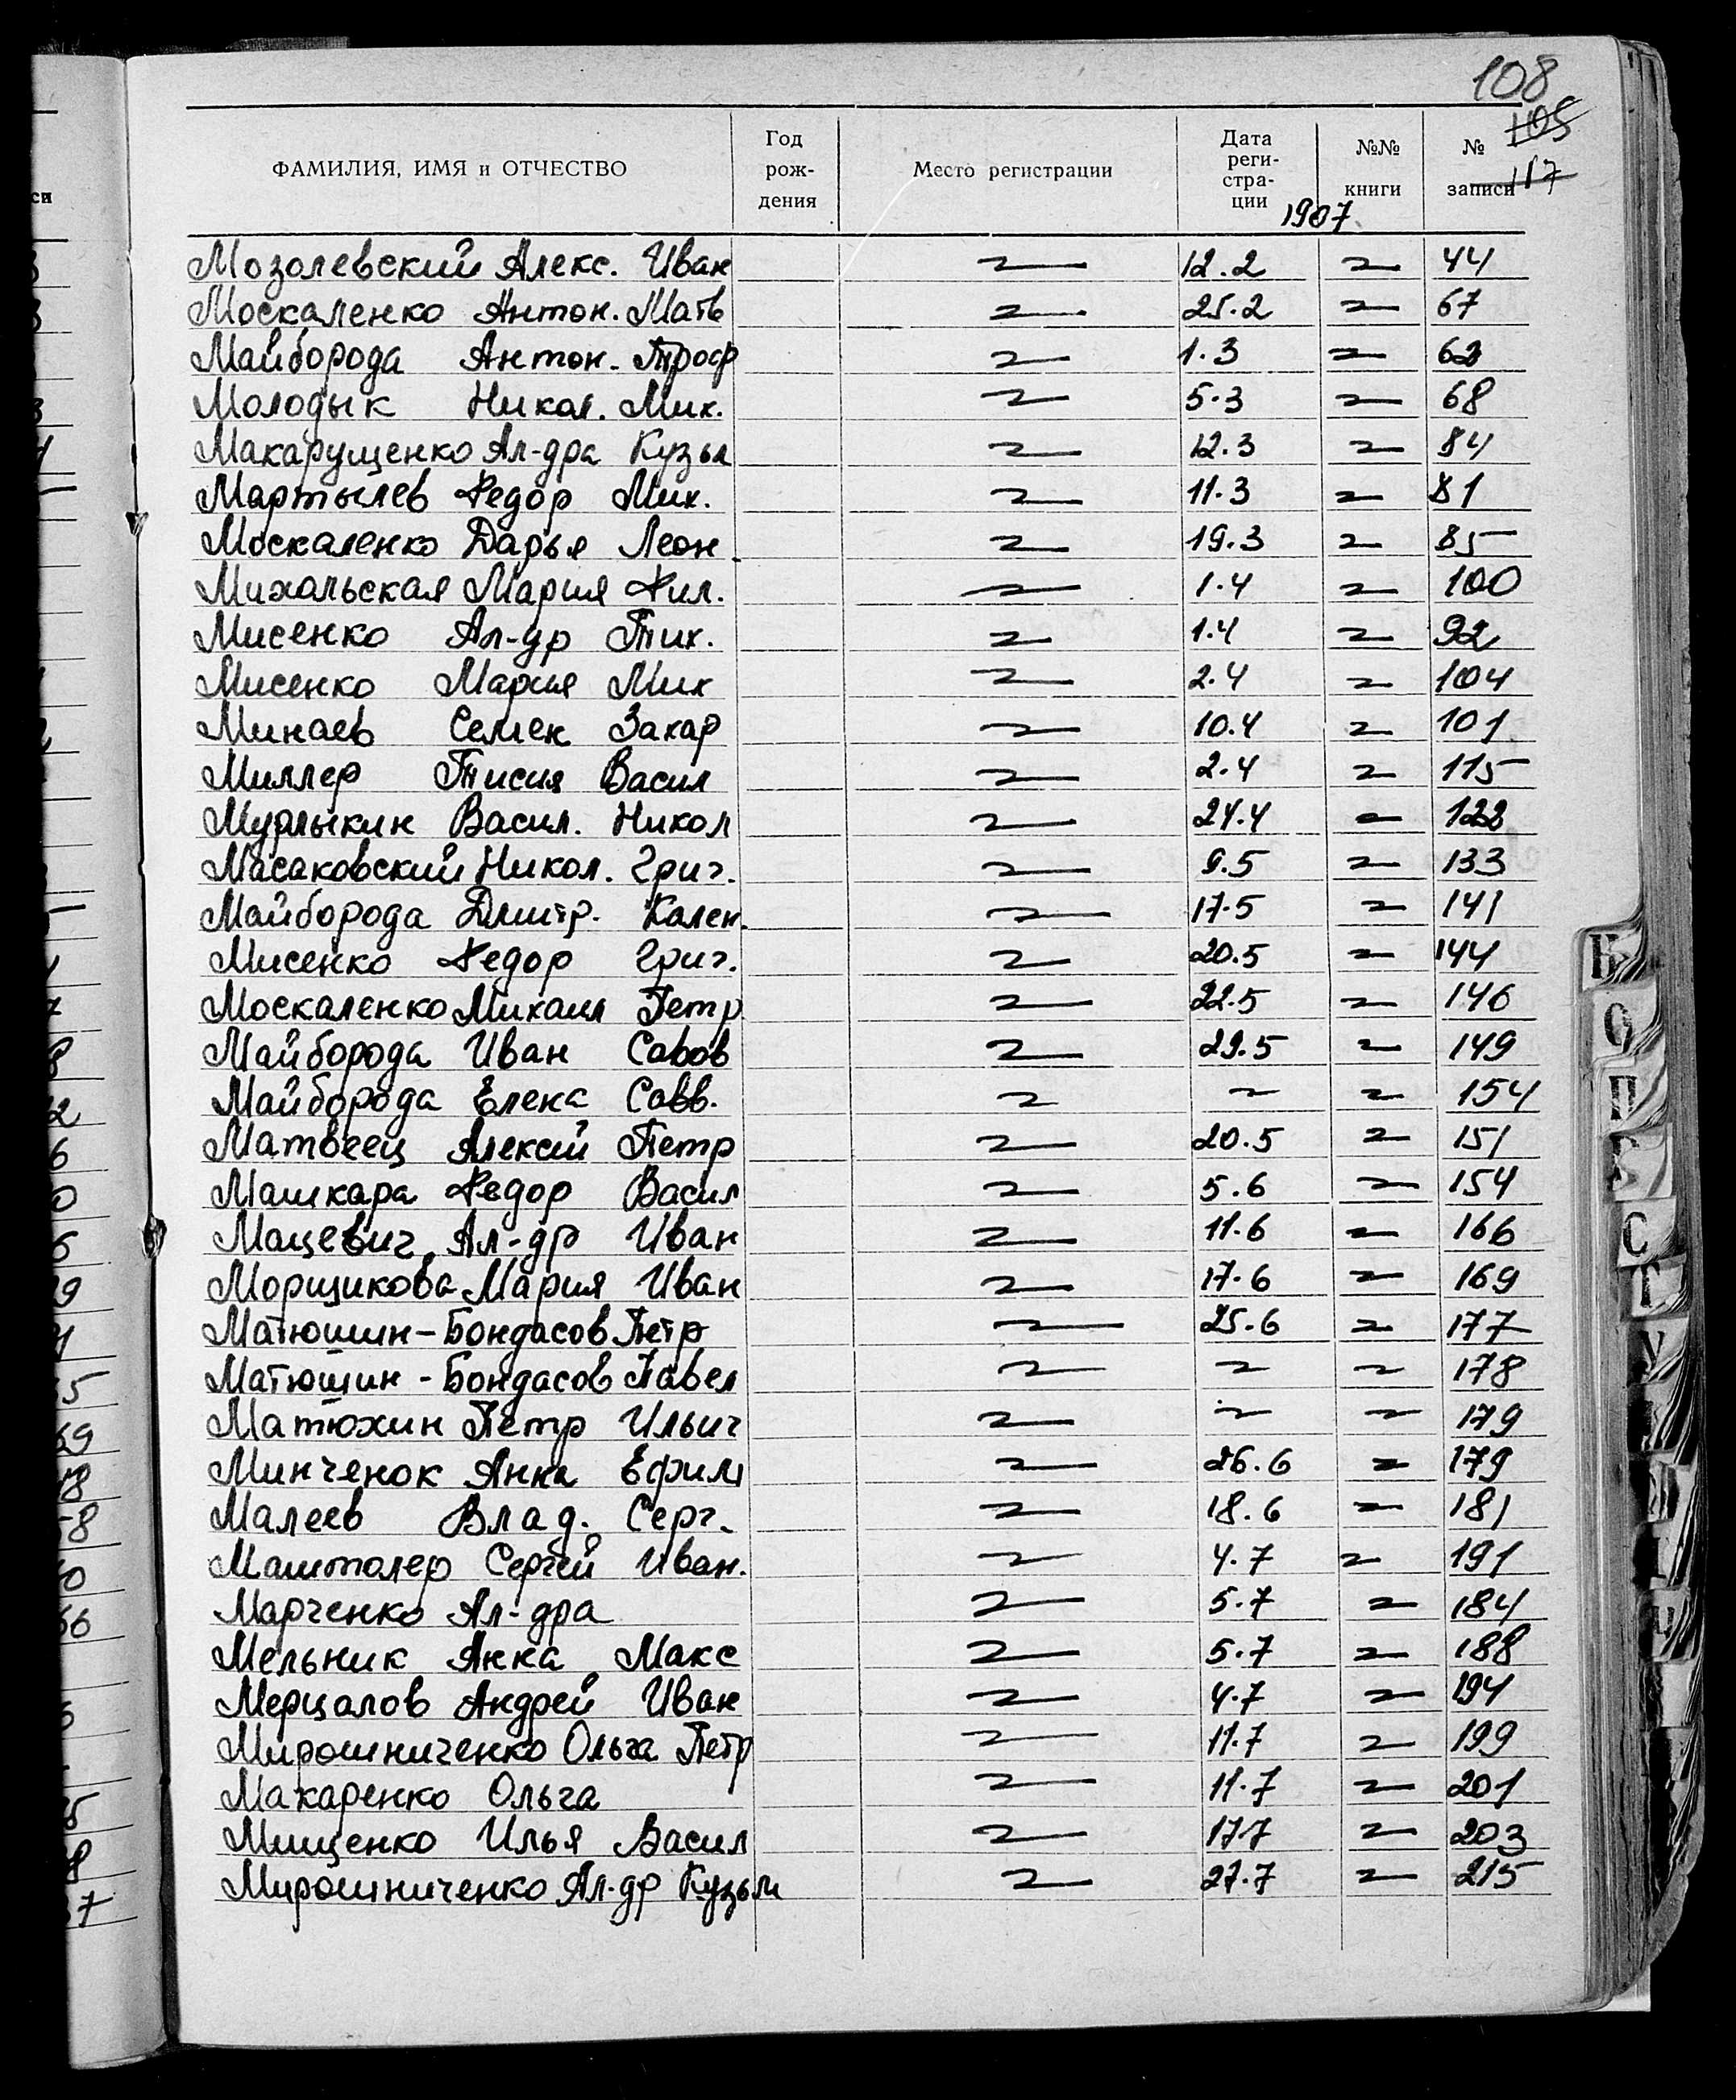 108
105
117
ФАМИЛИЯ, ИМЯ и ОТЧЕСТВО Год рож- дения Место регистрации Дата реги- стра- ции №№ книги № записи
1907
Мозолевский Алекс. Иван 12.2 44
Москаленко Антон. Матв 25.2 67
Майборода Антон. Троф 1.3 62
Молодык Никол. Мих. 5.3 68
Макарущенко Ал-дра Кузьм 12.3 84
Мартылев Федор Мих. 11.3 81
Москаленко Дарья Леон. 19.3 85
Михальская Мария Фил. 1.4 100
Мисенко Ал-др Тих. 1.4 92
Мисенко Мария Мих 2.4 104
Минаев Семен Захар 10.4 101
Миллер Тисия Васил 2.4 115
Мурлыкин Васил. Никол 24.4 122
Масаковский Никол. Григ. 9.5 133
Майборода Дмитр. Кален. 17.5 141
Мисенко Федор Григ. 20.5 144
Москаленко Михаил Петр 22.5 146
Майборода Иван Савов 29.5 149
Майборода Елена Савв. 154
Матвеец Алексей Петр 20.5 151
Машкара Федор Васил 5.6 154
Мацевич Ал-др Иван 11.6 166
Морщикова Мария Иван 17.6 169
Матюшин-Бондасов Петр 25.6 177
Матюшин-Бондасов Павел 178
Матюхин Петр Ильич 179
Минченок Анна Ефим 26.6 179
Малеев Влад. Серг. 18.6 181
Машталер Сергей Иван. 4.7 191
Марченко Ал-дра 5.7 184
Мельник Анна Макс 5.7 188
Мерцалов Андрей Иван 4.7 194
Мирошниченко Ольга Петр 11.7 199
Макаренко Ольга 11.7 201
Мищенко Илья Васил 17.7 203
Мирошниченко Ал-др Кузьм 27.7 215